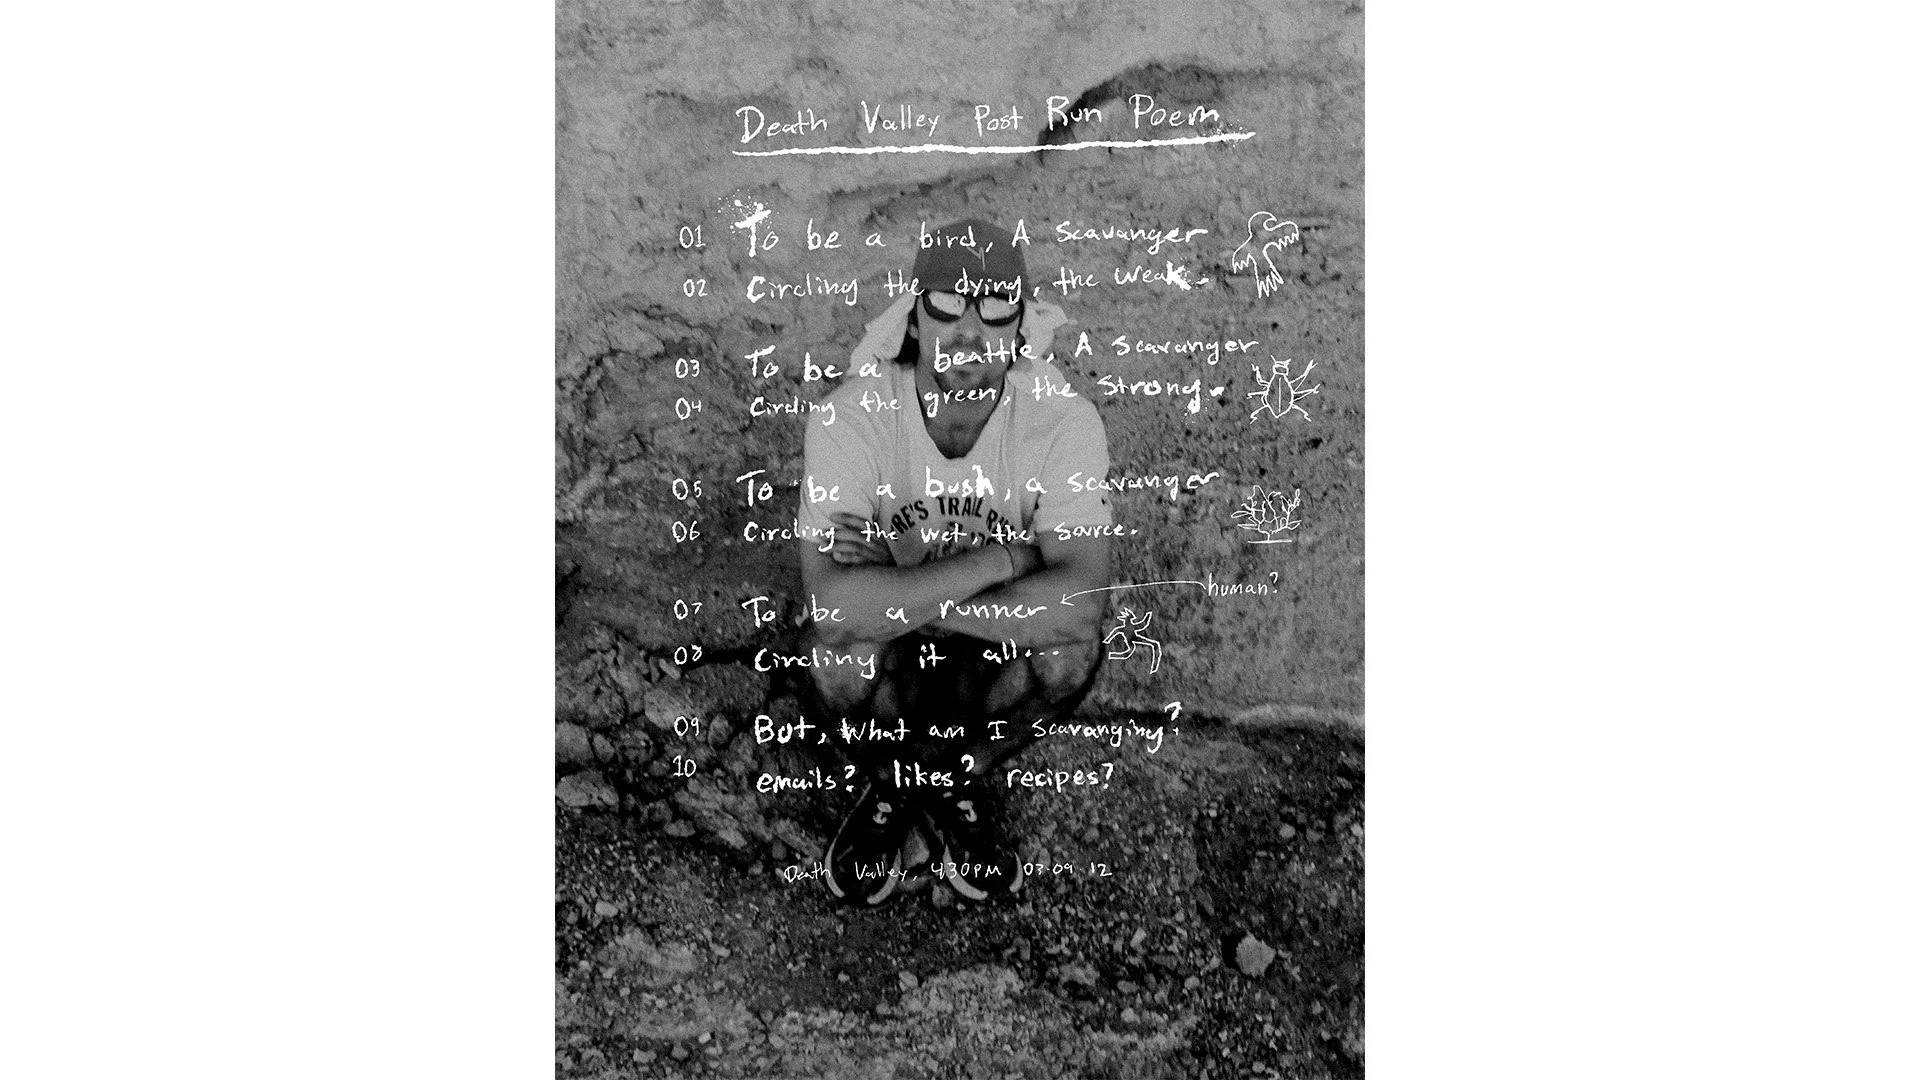 Death Valley Post Run Poem
01 To be a bird, A Scavanger
02 Circling the dying, the weak.
03 To be a beattle, A Scavanger
04 Circling the green, the Strong.
05 To be a bush, a scavanger
RE'S TRAIL
06 Circling the wet, the source.
human?
07 To be a runner
08 Circling it all...
09 But, What am I scavanging?
10 emails? likes? recipes?
Death Valley, 430PM 03.09.12